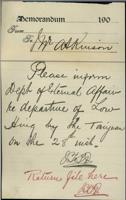 Memorandum 190
From
To Mr Atkinson
Please inform
Dept of External Affairs
re departure of Low
Hing by the Taiyuan
on the 28 inst.
Return file here